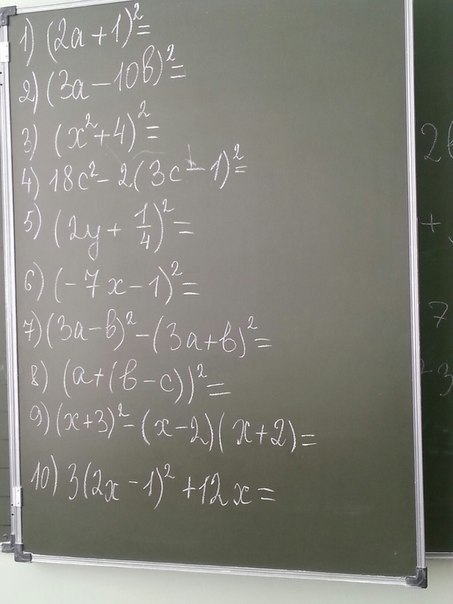 1) (2a+1)²=
2) (3a-10b)²=
3) (x²+4)²=
4) 18c²-2(3c-1)²=
5) (2y+1/4)²=
6) (-7x-1)²=
7) (3a-b)²-(3a+b)²=
8) (a+(b-c))²=
9) (x+3)²-(x-2)(x+2)=
10) 3(2x-1)²+12x=
2
+
7
3